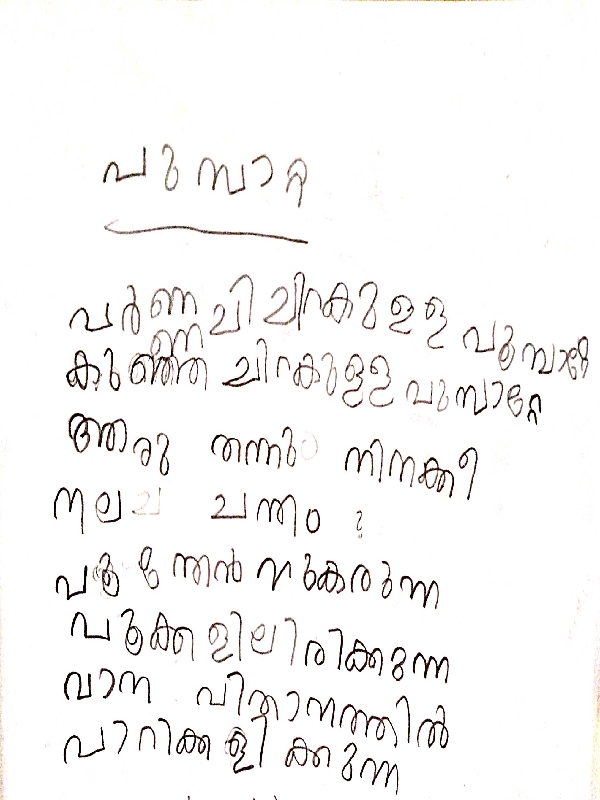 പുമ്പാറ്റ
വർണ്ണ ചിചിറകുള്ള പൂമ്പാറ്റേ
കുഞ്ഞു ചിറകുള്ള പുമ്പാറ്റേ
ആരു തന്നു നിനക്കീ
നല്ല ചന്തം ?
പൂന്തേൻ നുകരുന്ന
പൂക്കളിലിരിക്കുന്ന
വാന വിതാനത്തിൽ
പാറിക്കളിക്കുന്ന